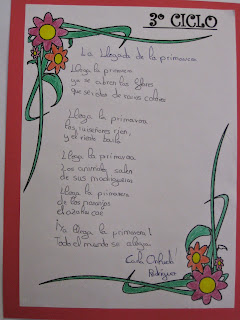 3º CICLO
La llegada de la primavera
Llega la primavera
ya se abren las flores
que se visten de varios colores
Llega la primavera
los ruiseñores ríen,
y el viento baila
Llega la primavera
Los animales salen
de sus madrigueras
Llega la primavera
de los naranjos
el azahar cae
¡Ya llega la primavera!
Todo el mundo se alegra
Carla
Rodríguez